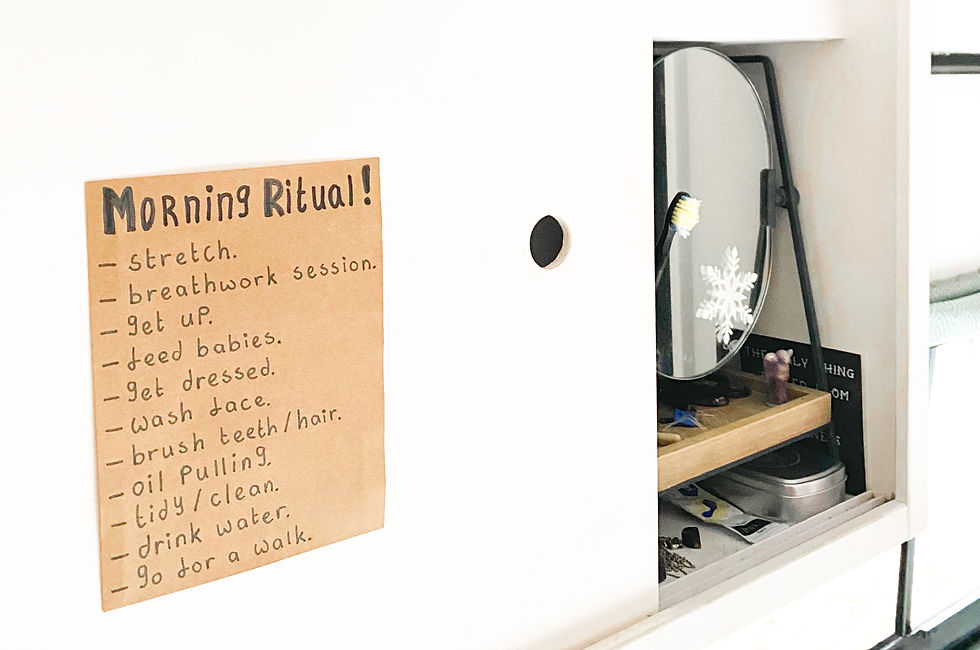 Morning Ritual!
– stretch.
– breathwork session.
– get up.
– feed babies.
– get dressed.
– wash face.
– brush teeth/hair.
– oil pulling.
– tidy/clean.
– drink water.
– go for a walk.
THE ONLY THING